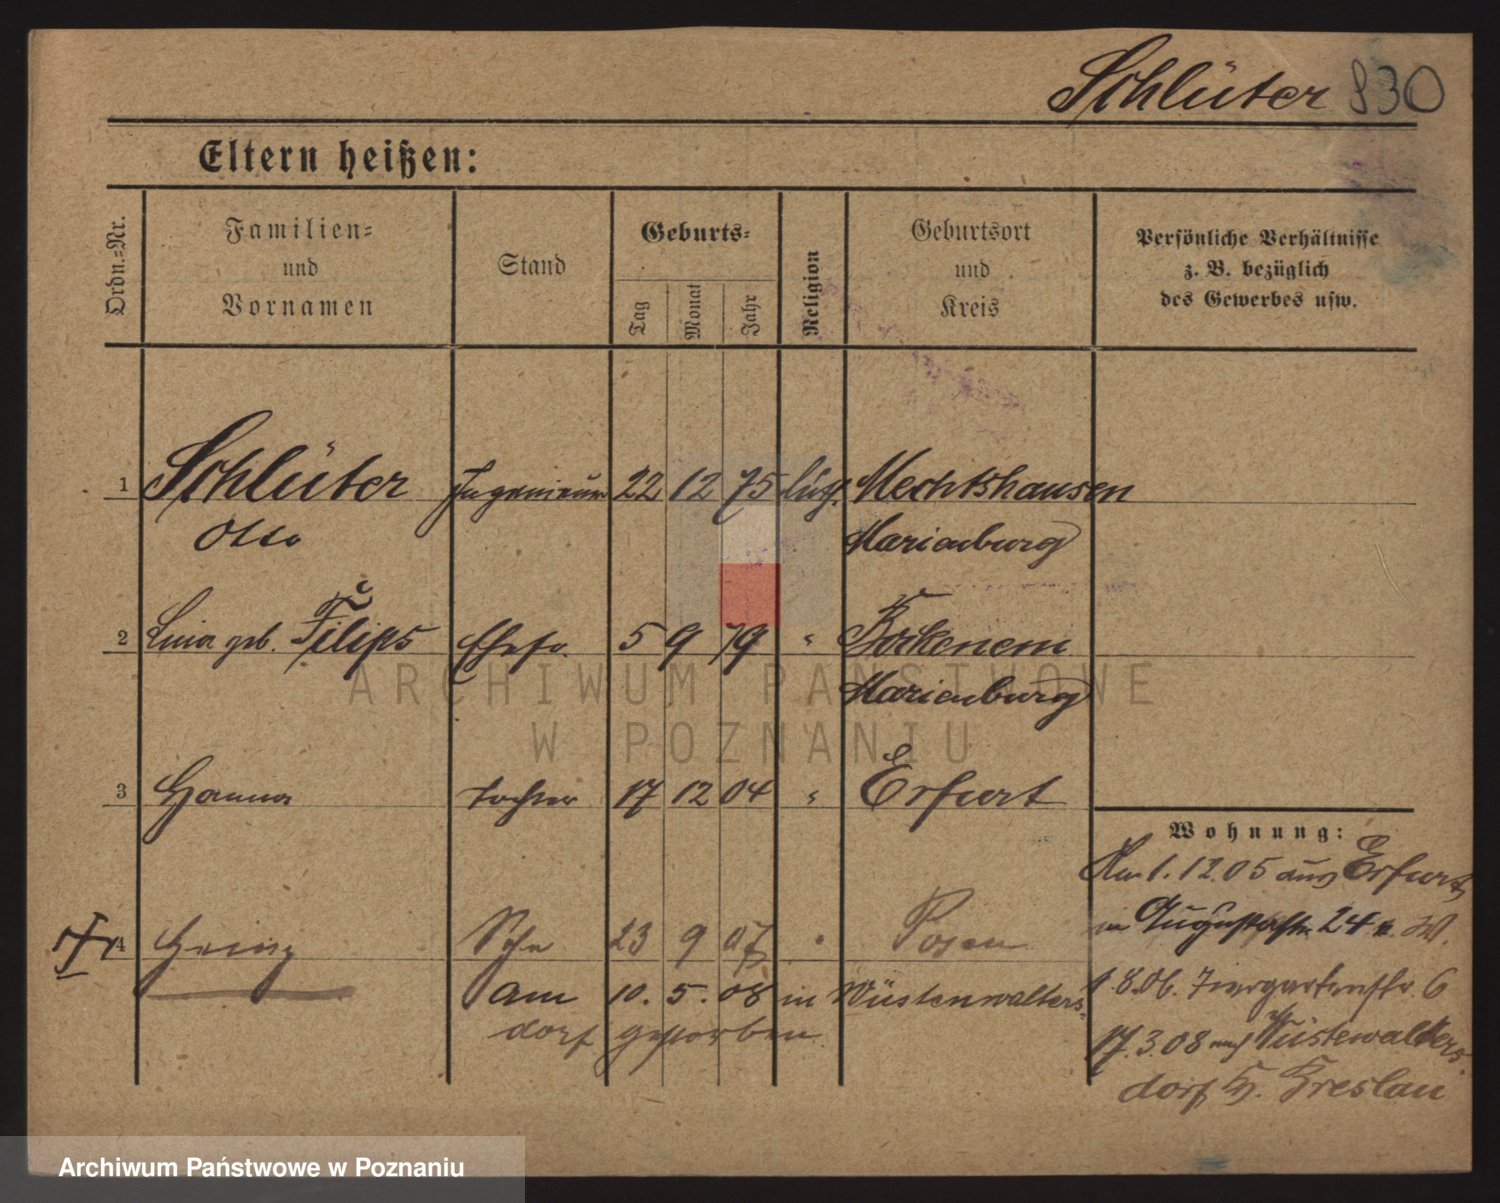 Schlüter 830
Eltern heißen:
Ordn.-Nr.
Familien-
und
Vornamen
Stand
Geburts-
Tag
Monat
Jahr
Religion
Geburtsort
und
Kreis
Persönliche Verhältnisse
z. B. bezüglich
des Gewerbes usw.
1 Schlüter Ingenieur 22 12 75 Mechtshausen
Otto Marienburg
2 Lina geb. Filips Ehefr. 5 9 79 " Bockenem
Marienburg
ARCHIWUM PAŃSTWOWE
W POZNANIU
3 Hanna Tochter 17 12 04 " Erfurt
Wohnung:
Am 1.12.05 aus Erfurt
4 Heinz Sohn 23 9 07 " Posen
in Augustastr. 24 W.
am 10. 5. 08 in Wüstenwalters-
dorf gestorben
1.8.06. Tiergartenstr. 6
17.3.08 nach Wüstewalters
dorf b. Breslau
Archiwum Państwowe w Poznaniu